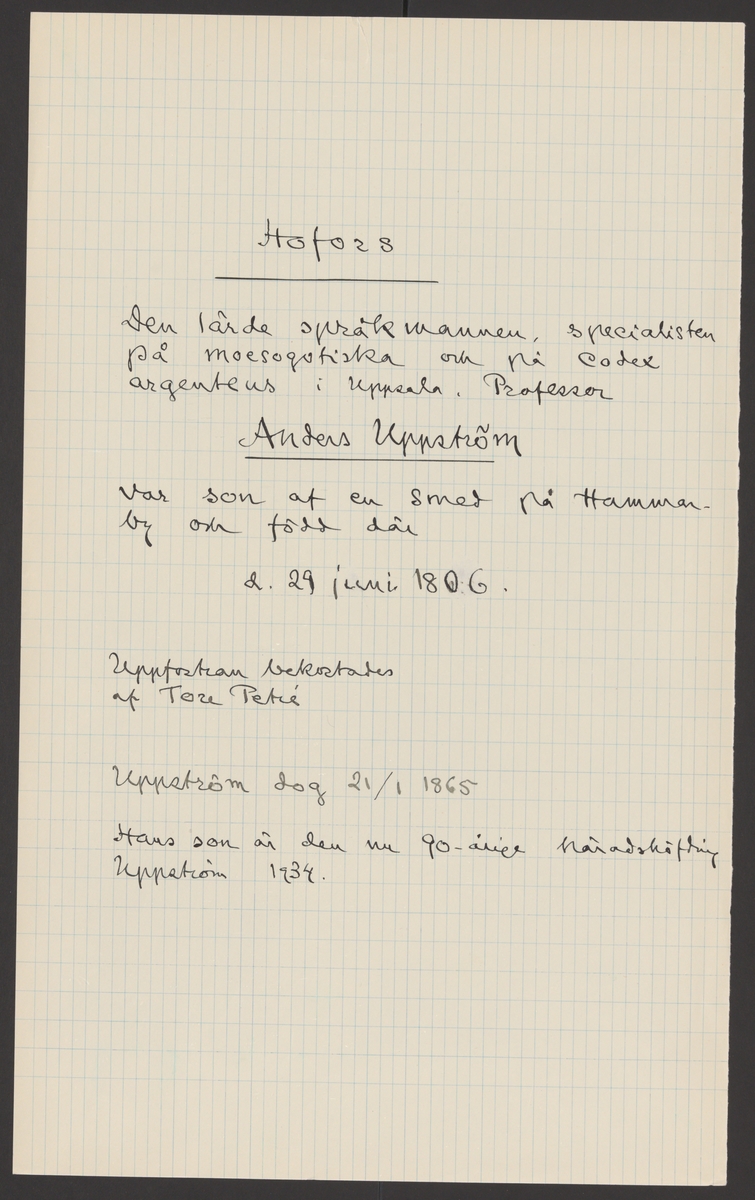 Hofors
Den lärde språkmannen, specialisten
på moesogotiska och på Codex
argenteus i Uppsala. Professor
Anders Uppström
var son af en smed på Hammar-
by och född där
d. 29 juni 1806.
Uppfostran bekostades
af Tore Petré
Uppström dog 21/1 1865
Hans son är den nu 90-årige häradshöfding
Uppström 1934.